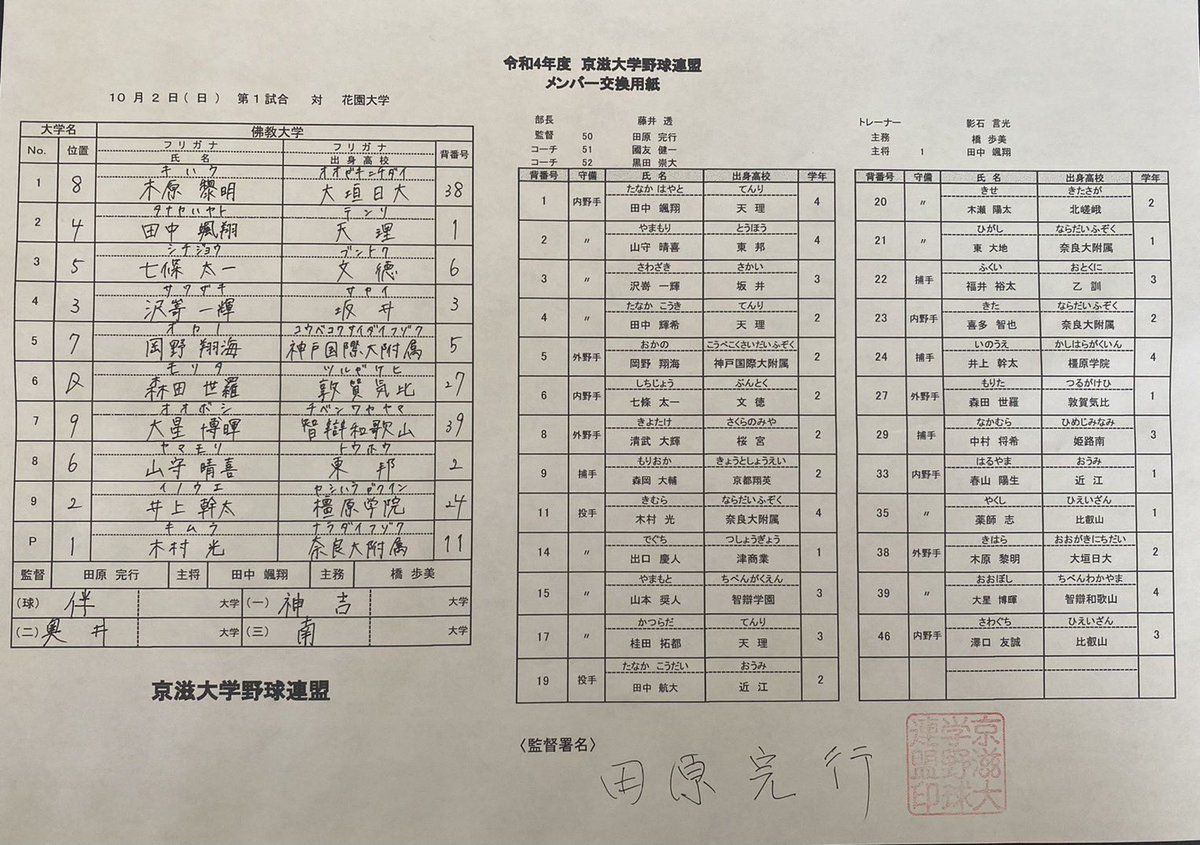 令和4年度 京滋大学野球連盟
メンバー交換用紙
10月2日(日) 第1試合 対 花園大学
大学名 佛教大学
No. 位置 フリガナ 氏名 フリガナ 出身高校 背番号
キハラ オオガキニチダイ
1 8 木原 黎明 大垣日大 38
タナカハヤト テンリ
2 4 田中 颯翔 天理 1
シチジョウ ブントク
3 5 七條 太一 文德 6
サワザキ サカイ
4 3 沢嵜 一輝 坂井 3
オカノ コウベコクサイダイフゾク
5 7 岡野 翔海 神戸国際大附属 5
モリタ ツルガケヒ
6 D 森田 世羅 敦賀気比 27
オオボシ チベンワカヤマ
7 9 大星 博暉 智辯和歌山 39
ヤマモリ トウホウ
8 6 山守 晴喜 東邦 2
イノウエ カシハラガクイン
9 2 井上 幹太 橿原学院 24
キムラ ナラダイフゾク
P 1 木村 光 奈良大附属 11
監督 田原 完行 主将 田中 颯翔 主務 橋 歩美
(球) 伴 大学 (一) 神吉 大学
(二) 奥井 大学 (三) 南 大学
京滋大学野球連盟
部長 藤井 透
監督 50 田原 完行
コーチ 51 國友 健一
コーチ 52 黒田 崇大
背番号 守備 氏名 出身高校 学年
たなか はやと てんり
1 内野手 田中 颯翔 天理 4
やまもり とうほう
2 〃 山守 晴喜 東邦 4
さわざき さかい
3 〃 沢嵜 一輝 坂井 3
たなか こうき てんり
4 〃 田中 輝希 天理 2
おかの こうべこくさいだいふぞく
5 外野手 岡野 翔海 神戸国際大附属 2
しちじょう ぶんとく
6 内野手 七條 太一 文徳 2
きよたけ さくらのみや
8 外野手 清武 大輝 桜宮 2
もりおか きょうとしょうえい
9 捕手 森岡 大輔 京都翔英 2
きむら ならだいふぞく
11 投手 木村 光 奈良大附属 4
でぐち つしょうぎょう
14 〃 出口 慶人 津商業 1
やまもと ちべんがくえん
15 〃 山本 奨人 智辯学園 3
かつらだ てんり
17 〃 桂田 拓都 天理 3
たなか こうだい おうみ
19 投手 田中 航大 近江 2
トレーナー 影石 言光
主務 橋 歩美
主将 1 田中 颯翔
背番号 守備 氏名 出身高校 学年
きせ きたさが
20 〃 木瀬 陽太 北嵯峨 2
ひがし ならだいふぞく
21 〃 東 大地 奈良大附属 1
ふくい おとくに
22 捕手 福井 裕太 乙訓 3
きた ならだいふぞく
23 内野手 喜多 智也 奈良大附属 2
いのうえ かしはらがくいん
24 捕手 井上 幹太 橿原学院 4
もりた つるがけひ
27 外野手 森田 世羅 敦賀気比 1
なかむら ひめじみなみ
29 捕手 中村 将希 姫路南 3
はるやま おうみ
33 内野手 春山 陽生 近江 1
やくし ひえいざん
35 〃 薬師 志 比叡山 1
きはら おおがきにちだい
38 外野手 木原 黎明 大垣日大 2
おおぼし ちべんわかやま
39 〃 大星 博暉 智辯和歌山 4
さわぐち ひえいざん
46 内野手 澤口 友誠 比叡山 3
〈監督署名〉
田原 完行
京滋大学野球連盟印